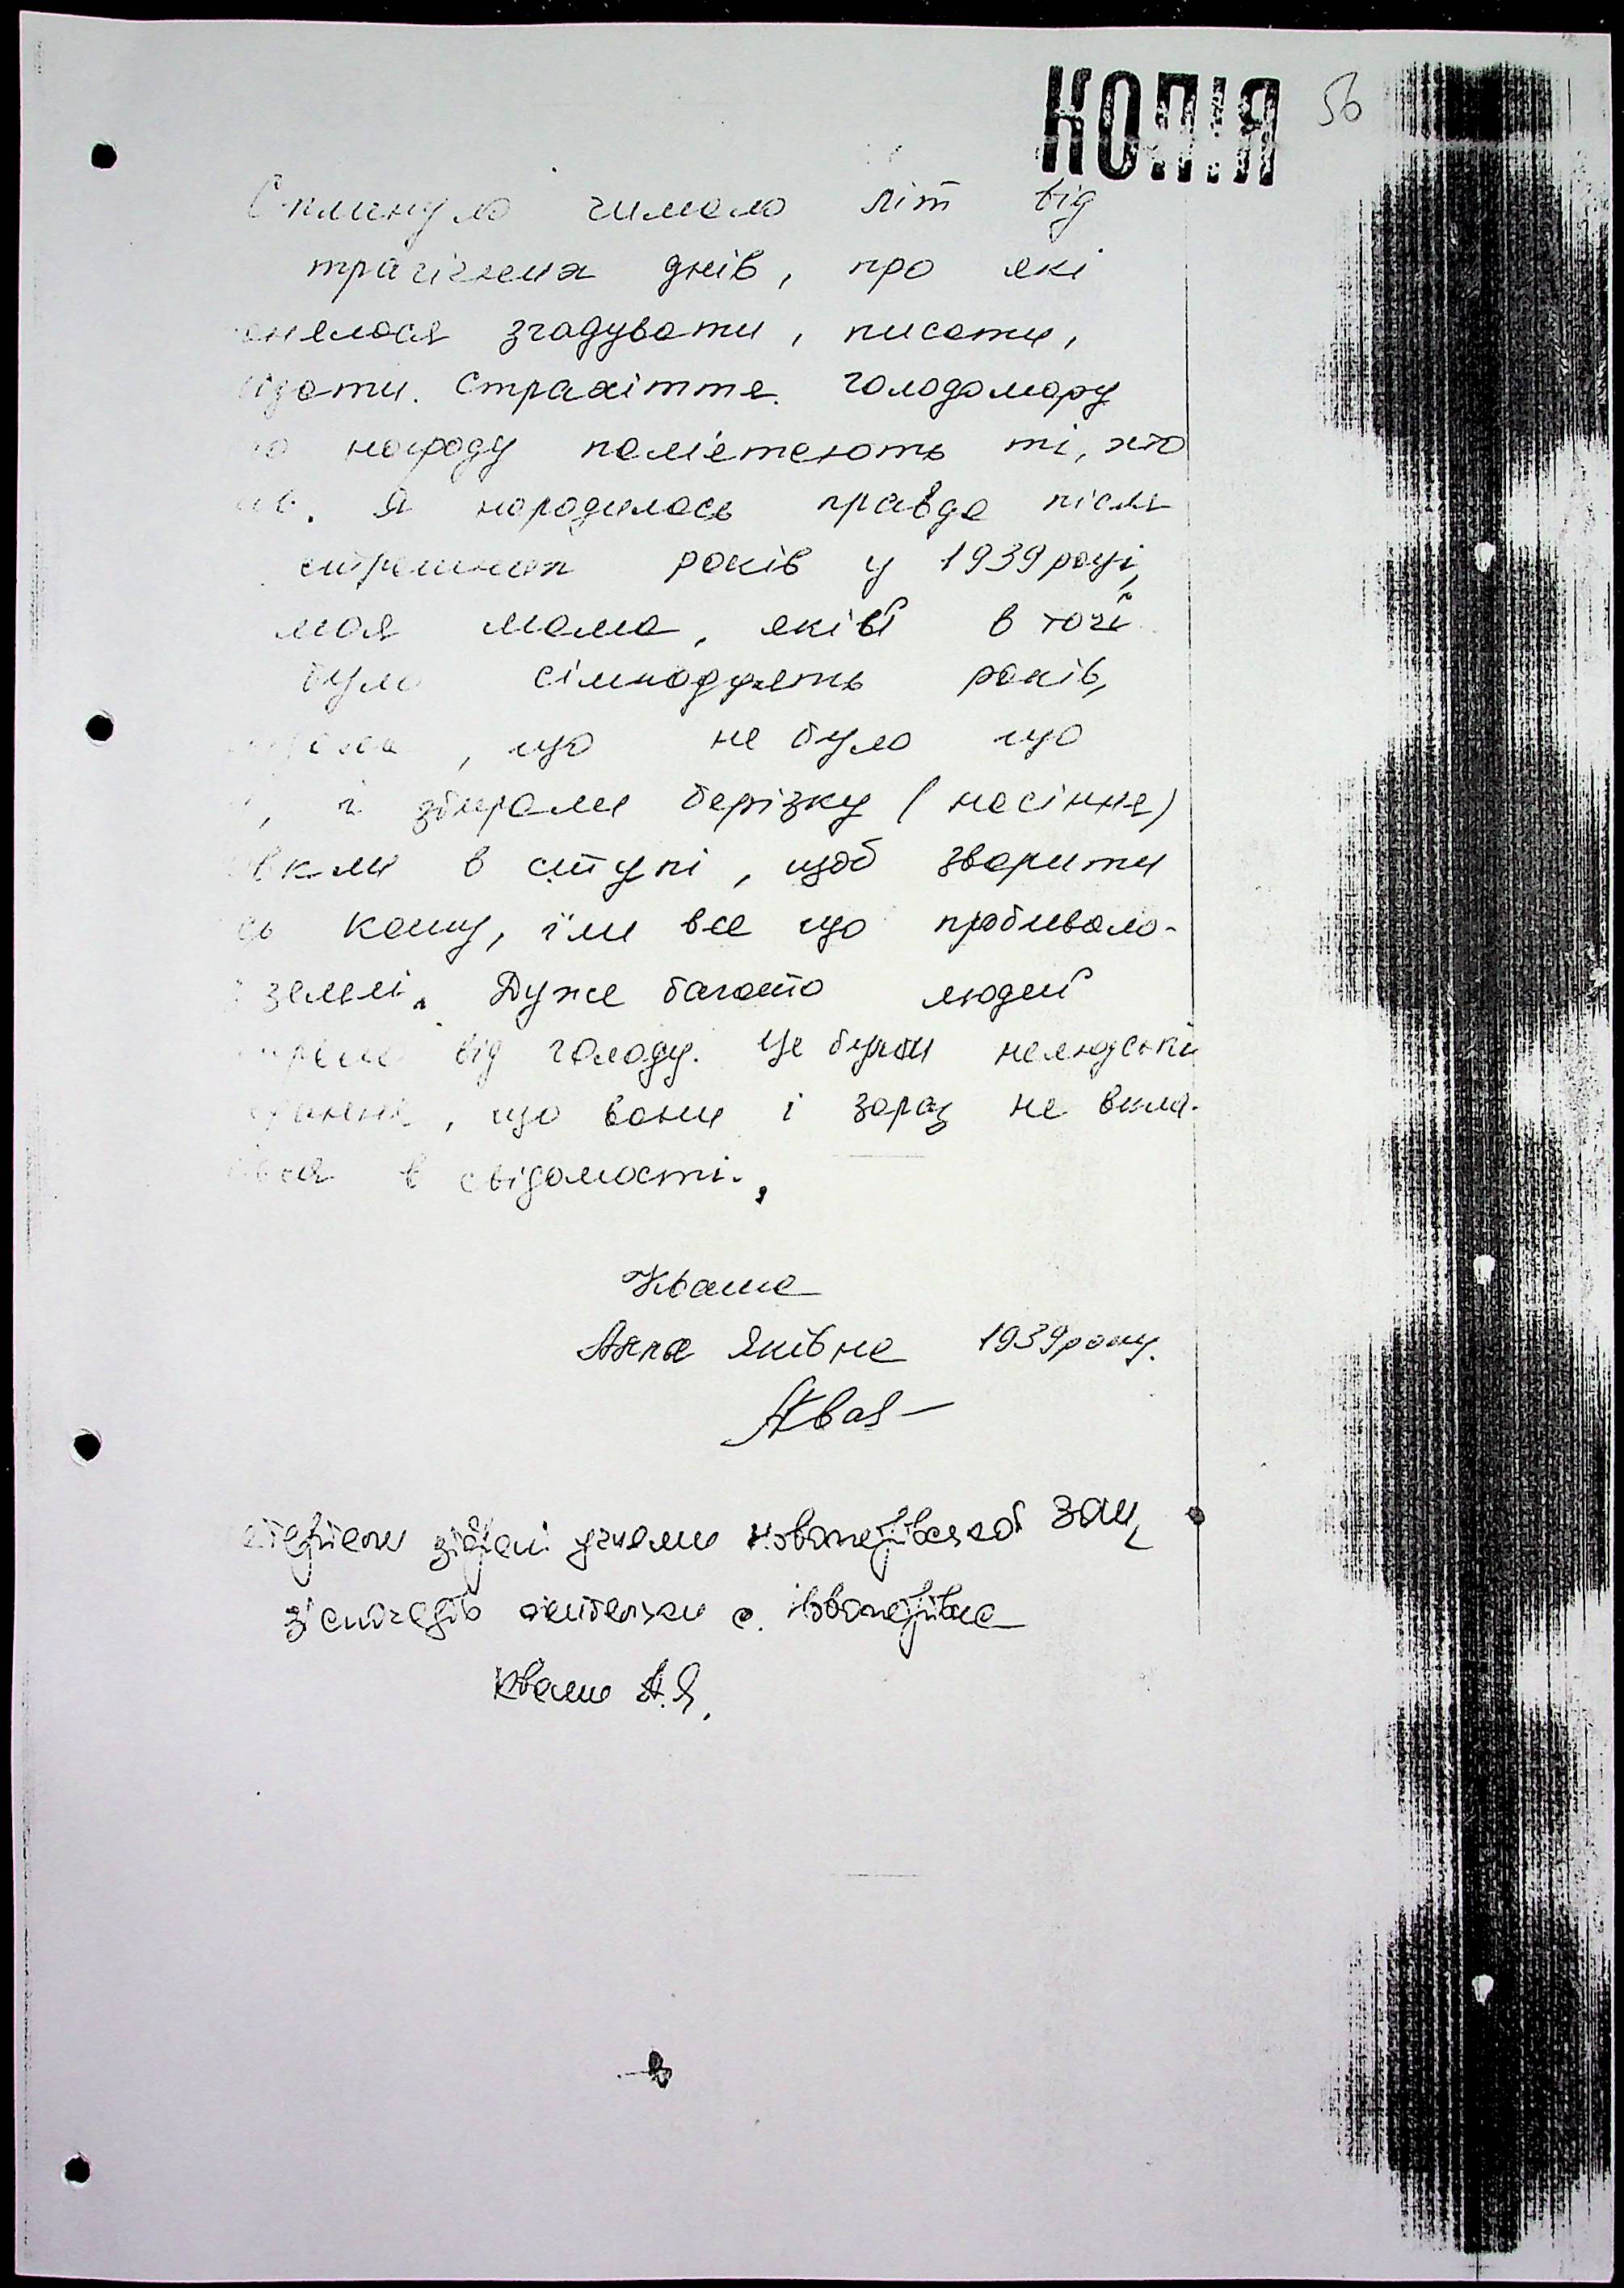 КОПІЯ 56
Сплинуло чимало літ від
трагічних днів, про які
згадувати, писати,
страхіття голодомору
народу пам'ятають ті, хто
Я народилась правда після
страшних років у 1939 році,
моя мама, якій в той
було сімнадцять років,
, що не було що
, і збирали берізку (насіння)
в ступі, щоб зварити
кашу, їли все що пробивало-
землі. Дуже багато людей
від голоду. Це були нелюдські
, що вони і зараз не вкла-
в свідомості.
Кваша
Анна Яківна 1939 року.
зібрані учнями Новопетрівської ЗОШ
зі спогадів жительки с. Новопетрівка
Кваші А.Я.